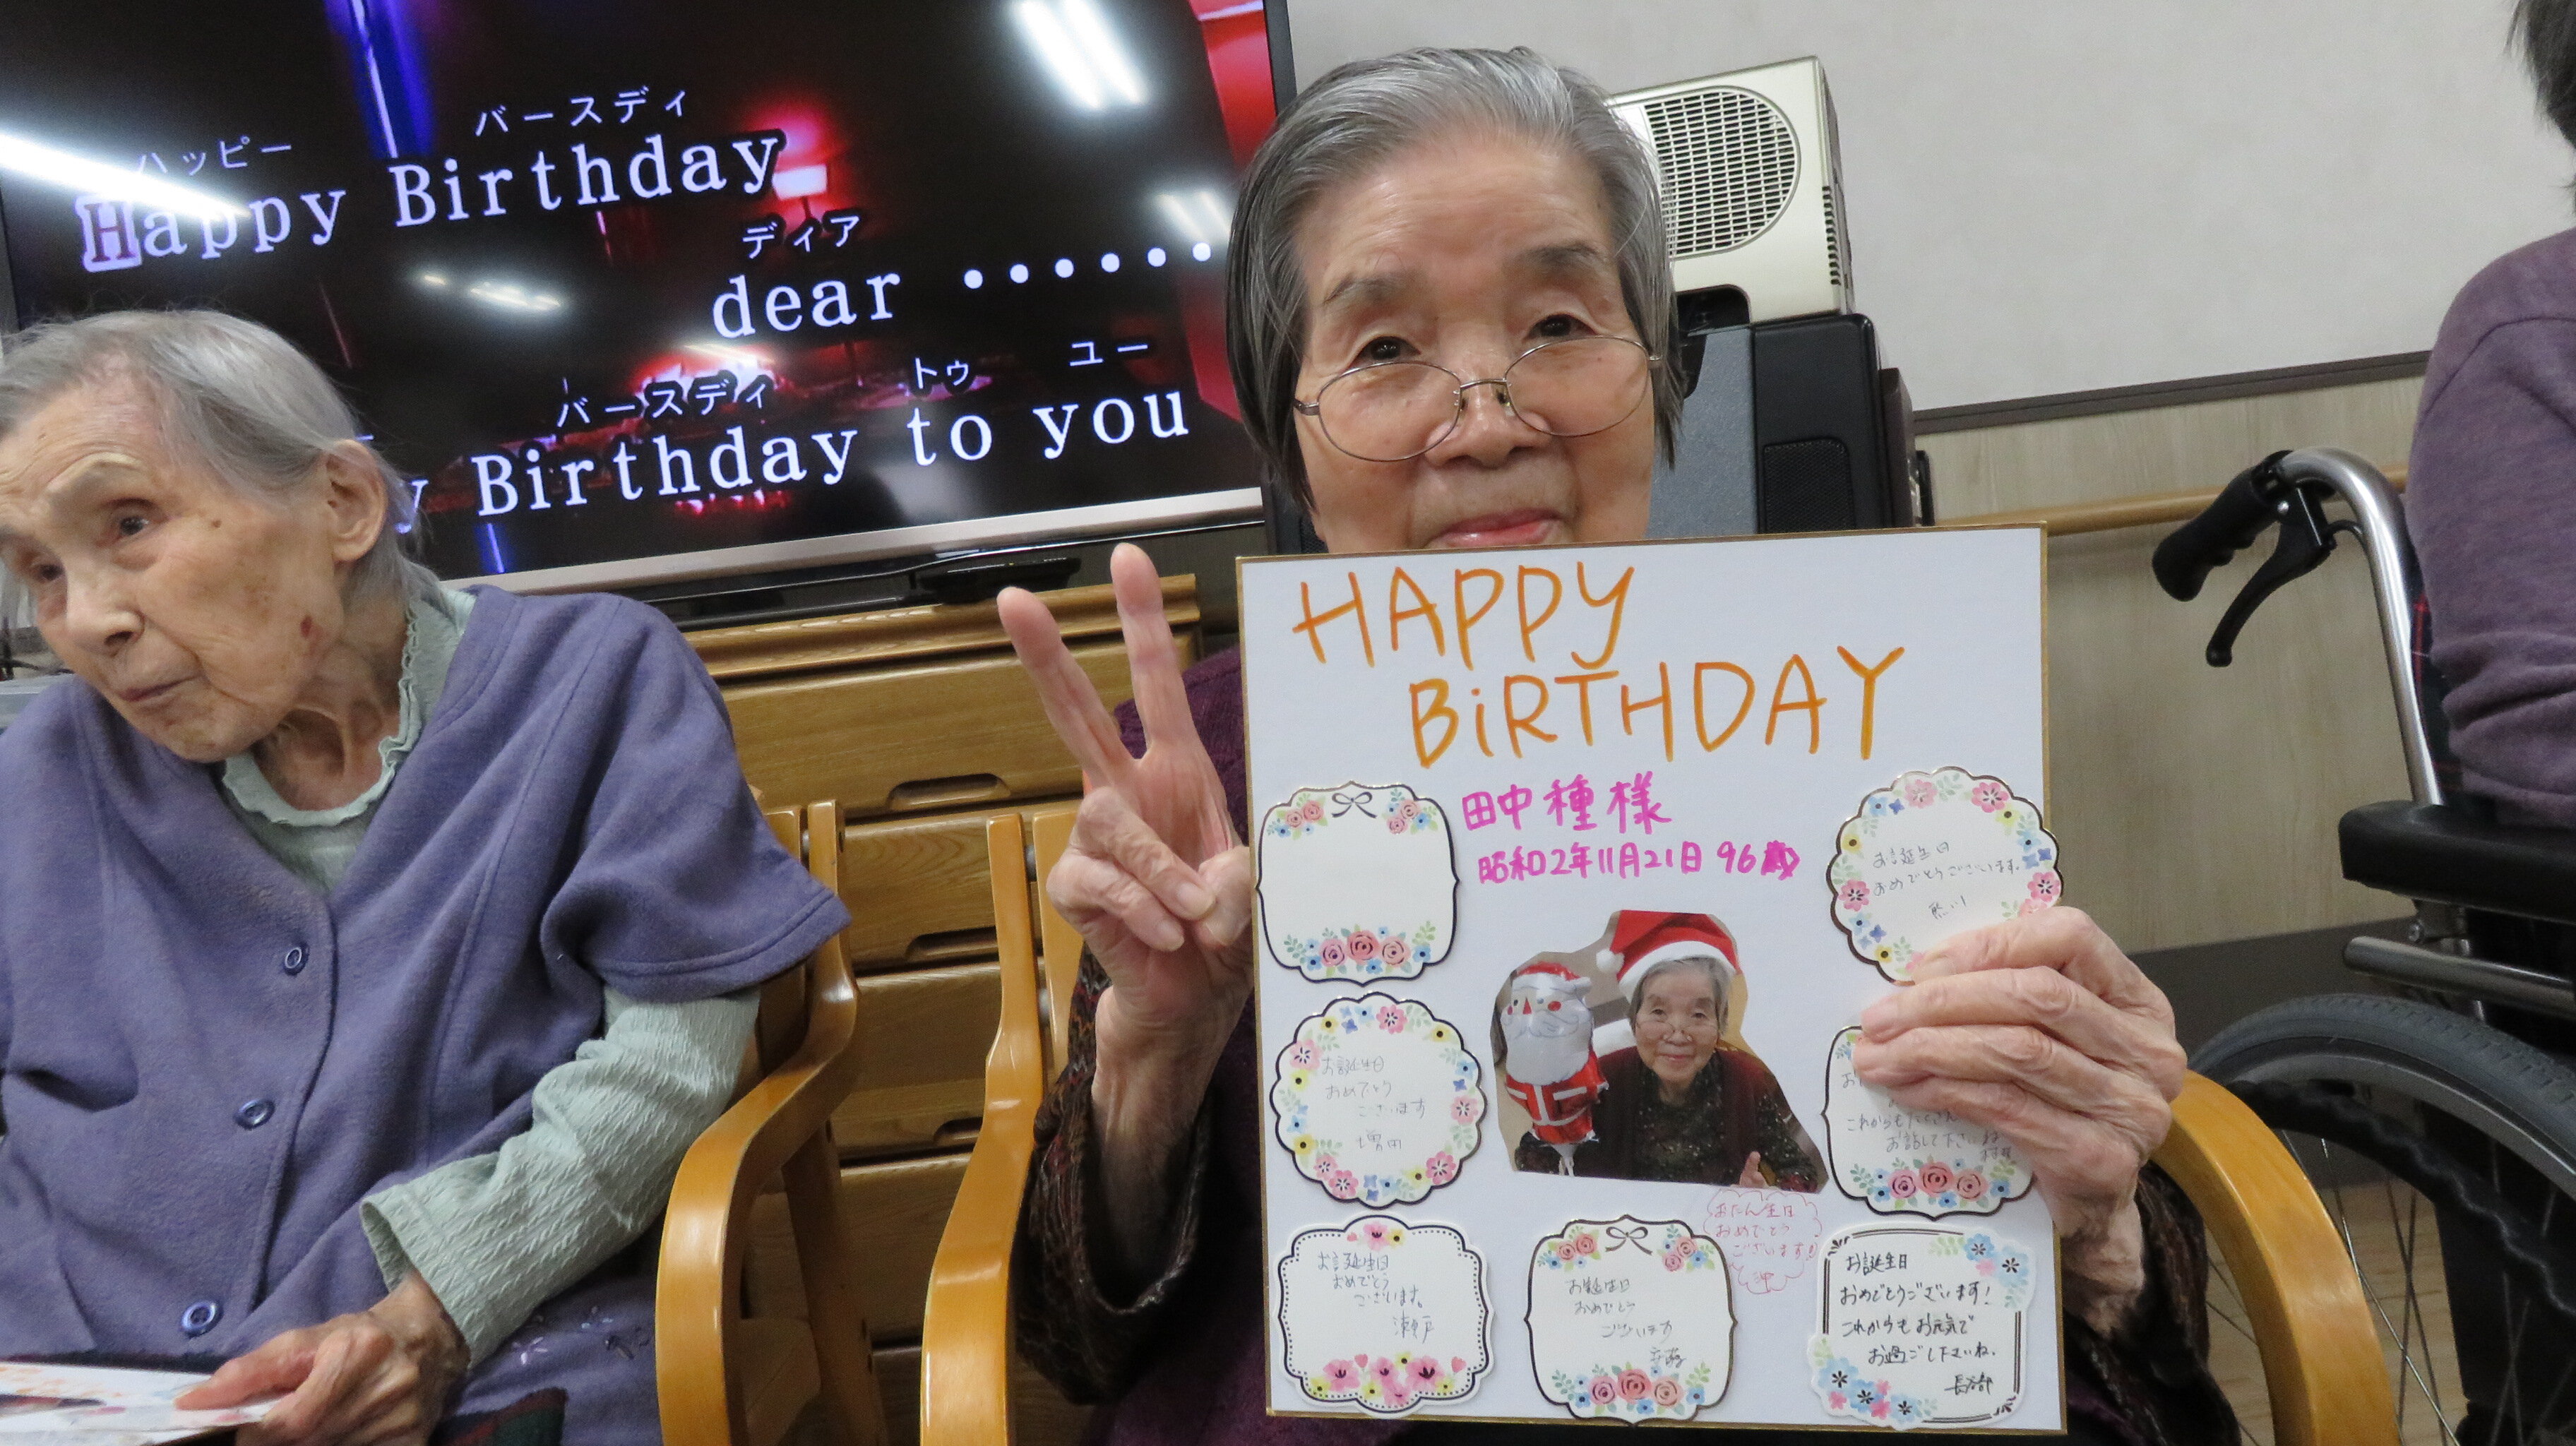 ハッピー バースディ
Happy Birthday
ディア
dear ・・・・・・
バースディ トゥ ユー
y Birthday to you
HAPPY
BiRTHDAY
田中種様
昭和2年11月21日 96歳
お誕生日
おめでとうございます。
熊川
お誕生日
おめでとう
ございます
増田
これからもたくさん
お話して下さいね
お誕生日
おめでとう
ございます。
瀬戸
お誕生日
おめでとう
ございます
おたん生日
おめでとう
ございます!
沖
お誕生日
おめでとうございます!
これからもお元気で
お過ごし下さいね。